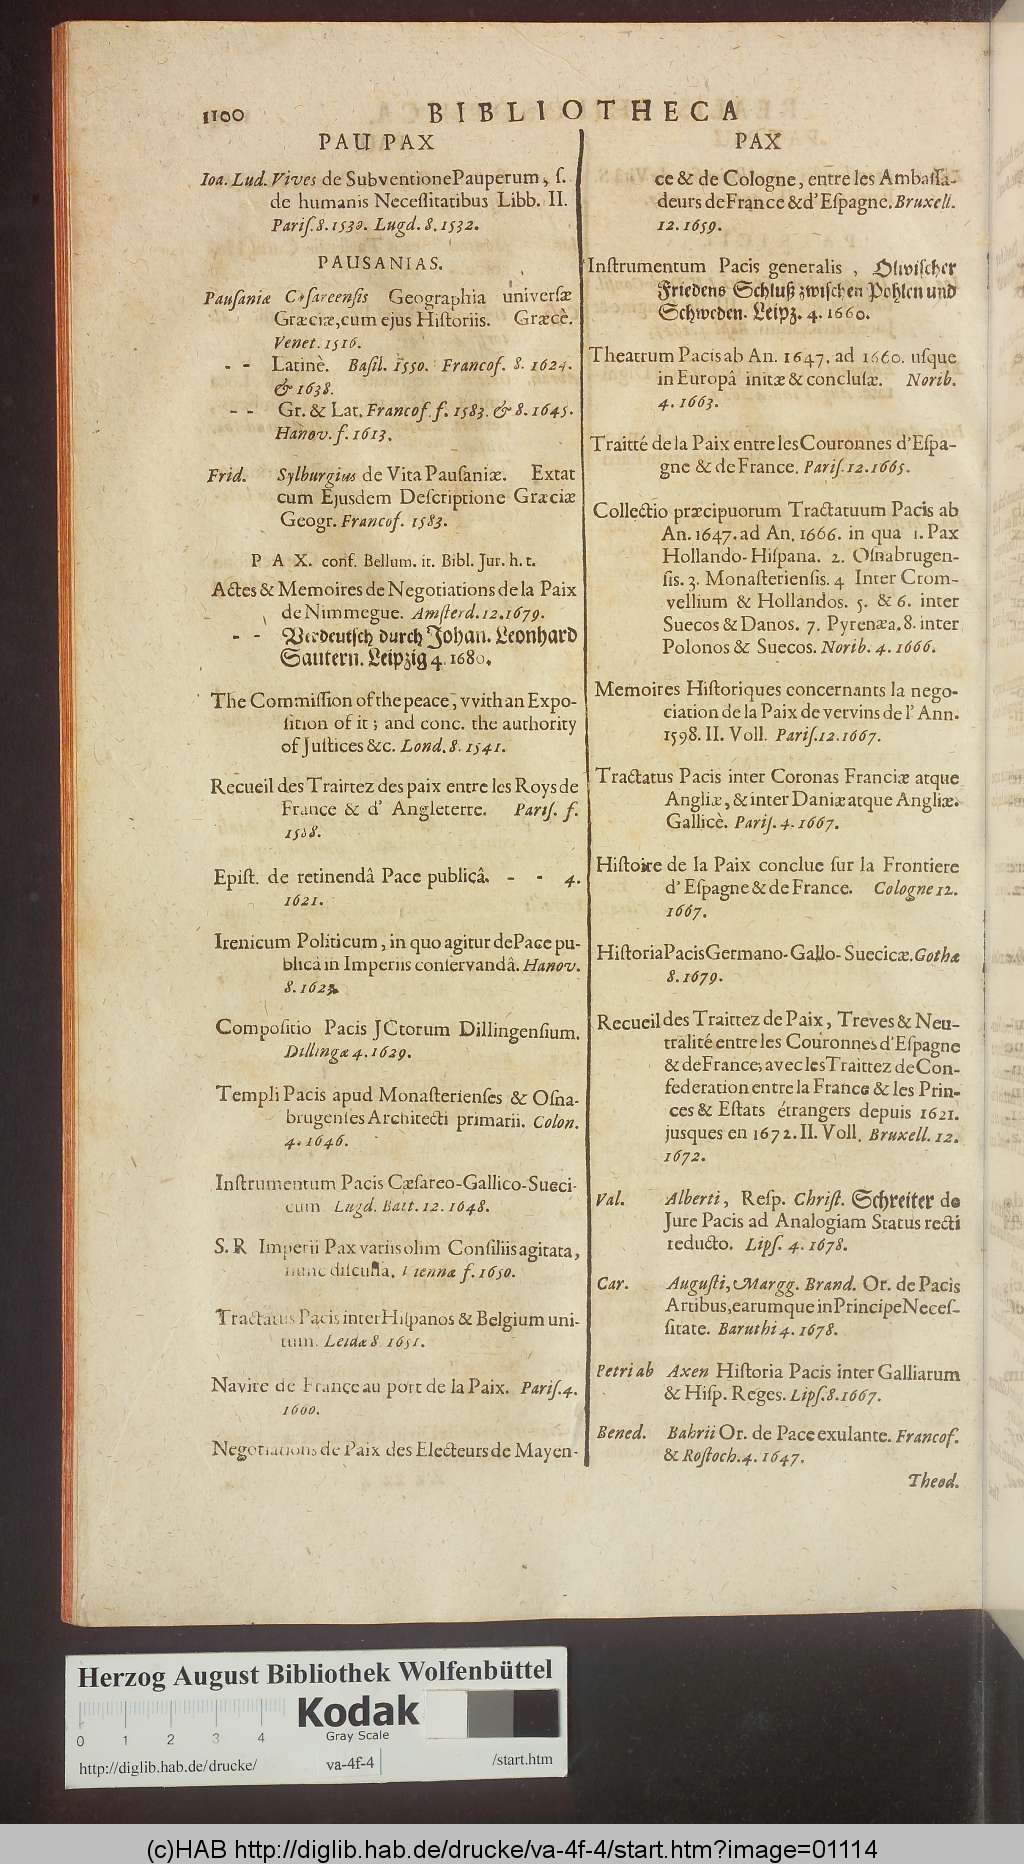 1100
BIBLIOTHECA
PAU PAX
Ioa. Lud. Vives de Subventione Pauperum, ſ.
de humanis Neceſſitatibus Libb. II.
Pariſ. 8. 1530. Lugd. 8. 1532.
PAUSANIAS.
Pauſaniæ Cæſareenſis Geographia univerſæ
Græciæ, cum ejus Hiſtoriis. Græcè.
Venet. 1516.
- - Latinè. Baſil. 1550. Francof. 8. 1624.
& 1638.
- - Gr. & Lat. Francof. f. 1583. & 8. 1645.
Hanov. f. 1613.
Frid. Sylburgius de Vita Pauſaniæ. Extat
cum Ejusdem Deſcriptione Græciæ
Geogr. Francof. 1583.
P A X. conf. Bellum. it. Bibl. Jur. h. t.
Actes & Memoires de Negotiations de la Paix
de Nimmegue. Amſterd. 12. 1679.
- - Verdeutſch durch Johan. Leonhard
Sautern. Leipzig 4. 1680.
The Commiſſion of the peace, vvith an Expo-
ſition of it; and conc. the authority
of Juſtices &c. Lond. 8. 1541.
Recueil des Traittez des paix entre les Roys de
France & d' Angleterre. Pariſ. f.
Epiſt. de retinendâ Pace publicâ. - - 4.
1621.
Irenicum Politicum, in quo agitur de Pace pu-
blicâ in Imperiis conſervandâ. Hanov.
8. 1623.
Compoſitio Pacis JCtorum Dillingenſium.
Dillingæ 4. 1629.
Templi Pacis apud Monaſterienſes & Oſna-
brugenſes Architecti primarii. Colon.
4. 1646.
Inſtrumentum Pacis Cæſareo-Gallico-Sueci-
cum Lugd. Batt. 12. 1648.
S. R Imperii Pax variis olim Conſiliis agitata,
nunc diſcuſſa. Viennæ f. 1650.
Tractatus Pacis inter Hiſpanos & Belgium uni-
tum. Leidæ 8. 1651.
Navire de France au port de la Paix. Pariſ. 4.
1600.
Negotiations de Paix des Electeurs de Mayen-
PAX
ce & de Cologne, entre les Ambaſſa-
deurs de France & d' Eſpagne. Bruxell.
12. 1659.
Inſtrumentum Pacis generalis, Olwiſcher
Friedens Schluß zwiſchen Pohlen und
Schweden. Leipz. 4. 1660.
Theatrum Pacis ab An. 1647. ad 1660. uſque
in Europâ initæ & concluſæ. Norib.
4. 1663.
Traitté de la Paix entre les Couronnes d' Eſpa-
gne & de France. Pariſ. 12. 1665.
Collectio præcipuorum Tractatuum Pacis ab
An. 1647. ad An. 1666. in qua 1. Pax
Hollando-Hiſpana. 2. Oſnabrugen-
ſis. 3. Monaſterienſis. 4 Inter Crom-
vellium & Hollandos. 5. & 6. inter
Suecos & Danos. 7. Pyrenæa. 8. inter
Polonos & Suecos. Norib. 4. 1666.
Memoires Hiſtoriques concernants la nego-
ciation de la Paix de vervins de l' Ann.
1598. II. Voll. Pariſ. 12. 1667.
Tractatus Pacis inter Coronas Franciæ atque
Angliæ, & inter Daniæ atque Angliæ.
Gallicè. Pariſ. 4. 1667.
Hiſtoire de la Paix conclue ſur la Frontiere
d' Eſpagne & de France. Cologne 12.
1667.
Hiſtoria Pacis Germano-Gallo-Suecicæ. Gothæ
8. 1679.
Recueil des Traittez de Paix, Treves & Neu-
tralité entre les Couronnes d' Eſpagne
& de France; avec les Traittez de Con-
federation entre la France & les Prin-
ces & Eſtats étrangers depuis 1621.
jusques en 1672. II. Voll. Bruxell. 12.
1672.
Val. Alberti, Reſp. Chriſt. Schreiter de
Jure Pacis ad Analogiam Status recti
reducto. Lipſ. 4. 1678.
Car. Auguſti, Margg. Brand. Or. de Pacis
Artibus, earumque in Principe Neceſ-
ſitate. Baruthi 4. 1678.
Petri ab Axen Hiſtoria Pacis inter Galliarum
& Hiſp. Reges. Lipſ. 8. 1667.
Bened. Bahrii Or. de Pace exulante. Francof.
& Roſtoch. 4. 1647.
Theod.
Herzog August Bibliothek Wolfenbüttel
Kodak
Gray Scale
0 1 2 3 4
http://diglib.hab.de/drucke/ va-4f-4 /start.htm
(c)HAB http://diglib.hab.de/drucke/va-4f-4/start.htm?image=01114